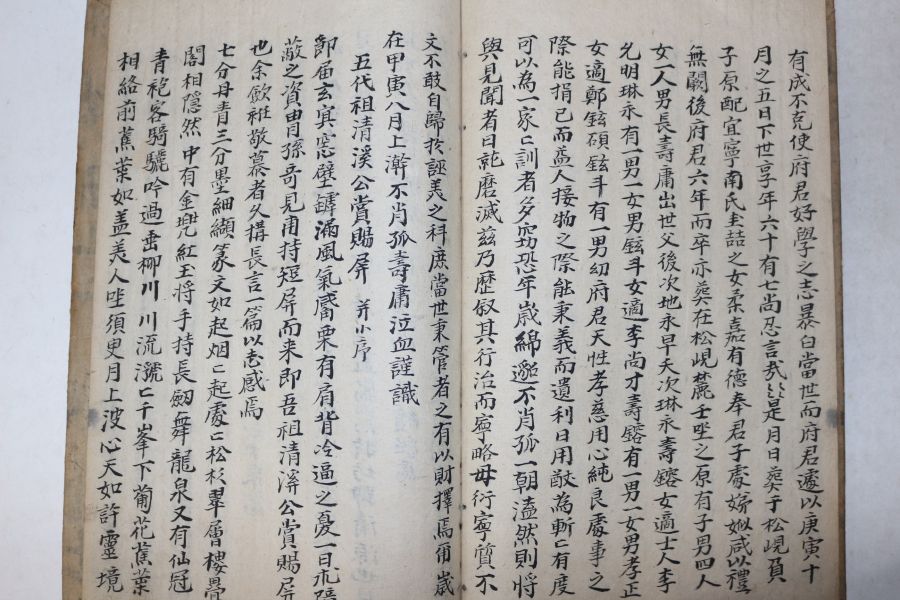 有成不克使府君好學之志暴白當世而府君遽以庚寅十
月之五日下世享年六十有七尚忍言哉〻是月日葬于松峴負
子原配宜寧南氏圭喆之女柔嘉有德奉君子處娣姒咸以禮
無闕後府君六年而卒亦葬在松峴麓壬坐之原有子男四人
女一人男長壽庸出世父後次地永早夭次琳永壽鎔女適士人李
允明琳永有一男一女男鉉斗女適李尚才壽鎔有一男一女男孝正
女適鄭鉉碩鉉斗有一男幼府君天性孝慈用心純良處事之
際能捐已而益人接物之際能秉義而遺利日用酬爲斬〻有度
可以為一家之訓者多竊恐年歲綿邈不肖孤一朝溘然則將
與見聞者日就磨滅茲乃歷叙其行治而寧略毋衍寧質不
文不敢自歸於誣美之科庶當世秉管者之有以財擇焉甭歲
在甲寅八月上澣不肖孤壽庸泣血謹識
五代祖清溪公賞賜屏 并小序
節届玄冥窓壁罅漏風氣觱栗有肩背冷逼之憂一日永陪
敞之資胄孫奇見甫持短屏而来即吾祖清溪公賞賜屏
也余歛袵敬慕者久構長言一篇以志感焉
七分丹青三分墨細纈篆文如起烟〻起處〻松杉翠層樓疊
閣相隱然中有金兜紅玉将手持長劒舞龍泉又有仙冠
青袍客騎驢吟過垂柳川川流㶁〻千峯下葡花蕉葉
相絡前蕉葉如盖美人坐須臾月上波心天如許靈境